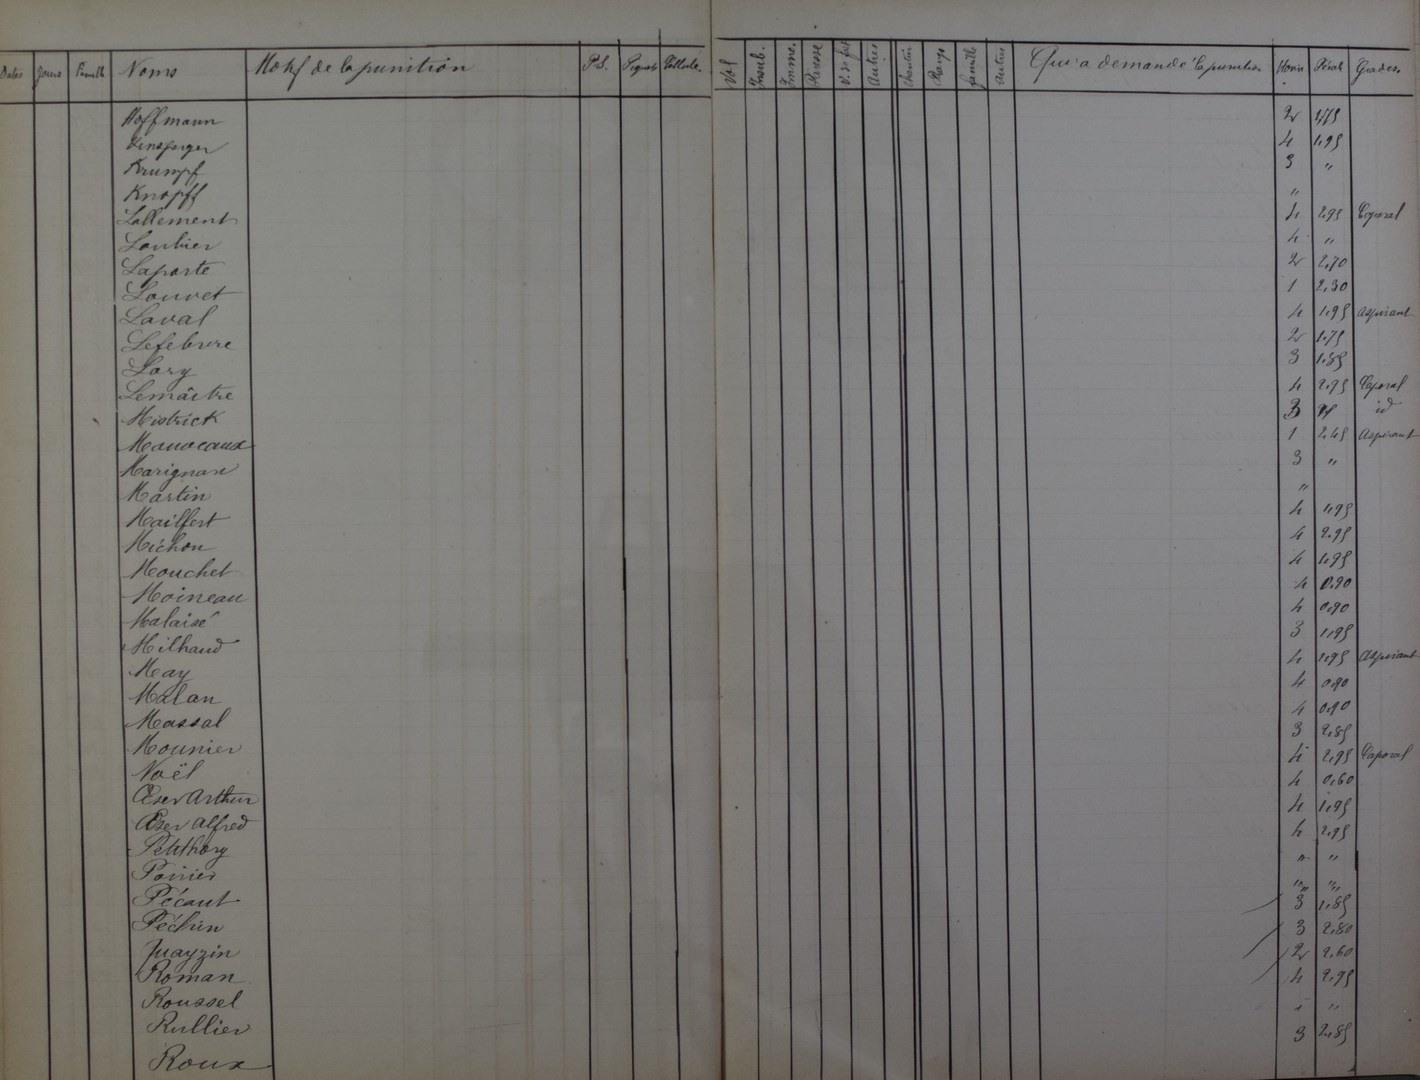 Dates Jours Famille Noms Motif de la punition P.S. Piquet Vol Insub. Paresse Autres Rang famille Autres Qui a demandé la punition Grades
Hoffmann 2 1,75
4 1,95
Krumpf 3 "
Knopff "
Lallement 4 2,95 Caporal
Loubier 4 "
Laporte 2 2,70
Louvet 1 2,30
Laval 4 1,95 Aspirant
Lefebvre 2 1,75
Lory 3 1,85
Lemaître 4 2,95 Caporal
Mistrick 3 id
Mauveaux 1 2,45 Aspirant
Marignan 3 "
Martin "
Mailfert 4 1,95
Michon 4 2,95
Mouchet 4 1,95
Moineau 4 0,90
Malaisé 4 0,90
Milhaud 3 1,95
May 4 1,95 Aspirant
Malan 4 0,90
Massal 4 0,90
Mounier 3 2,85
Noël 4 2,95 Caporal
Œser Arthur 4 0,60
Œser Alfred 4 1,95
Petithory 4 2,95
Poirier " "
Pécaut " "
Péchin 3 1,85
3 2,80
Roman 2 2,60
Roussel 4 2,95
Rullier " "
Roux 3 2,85